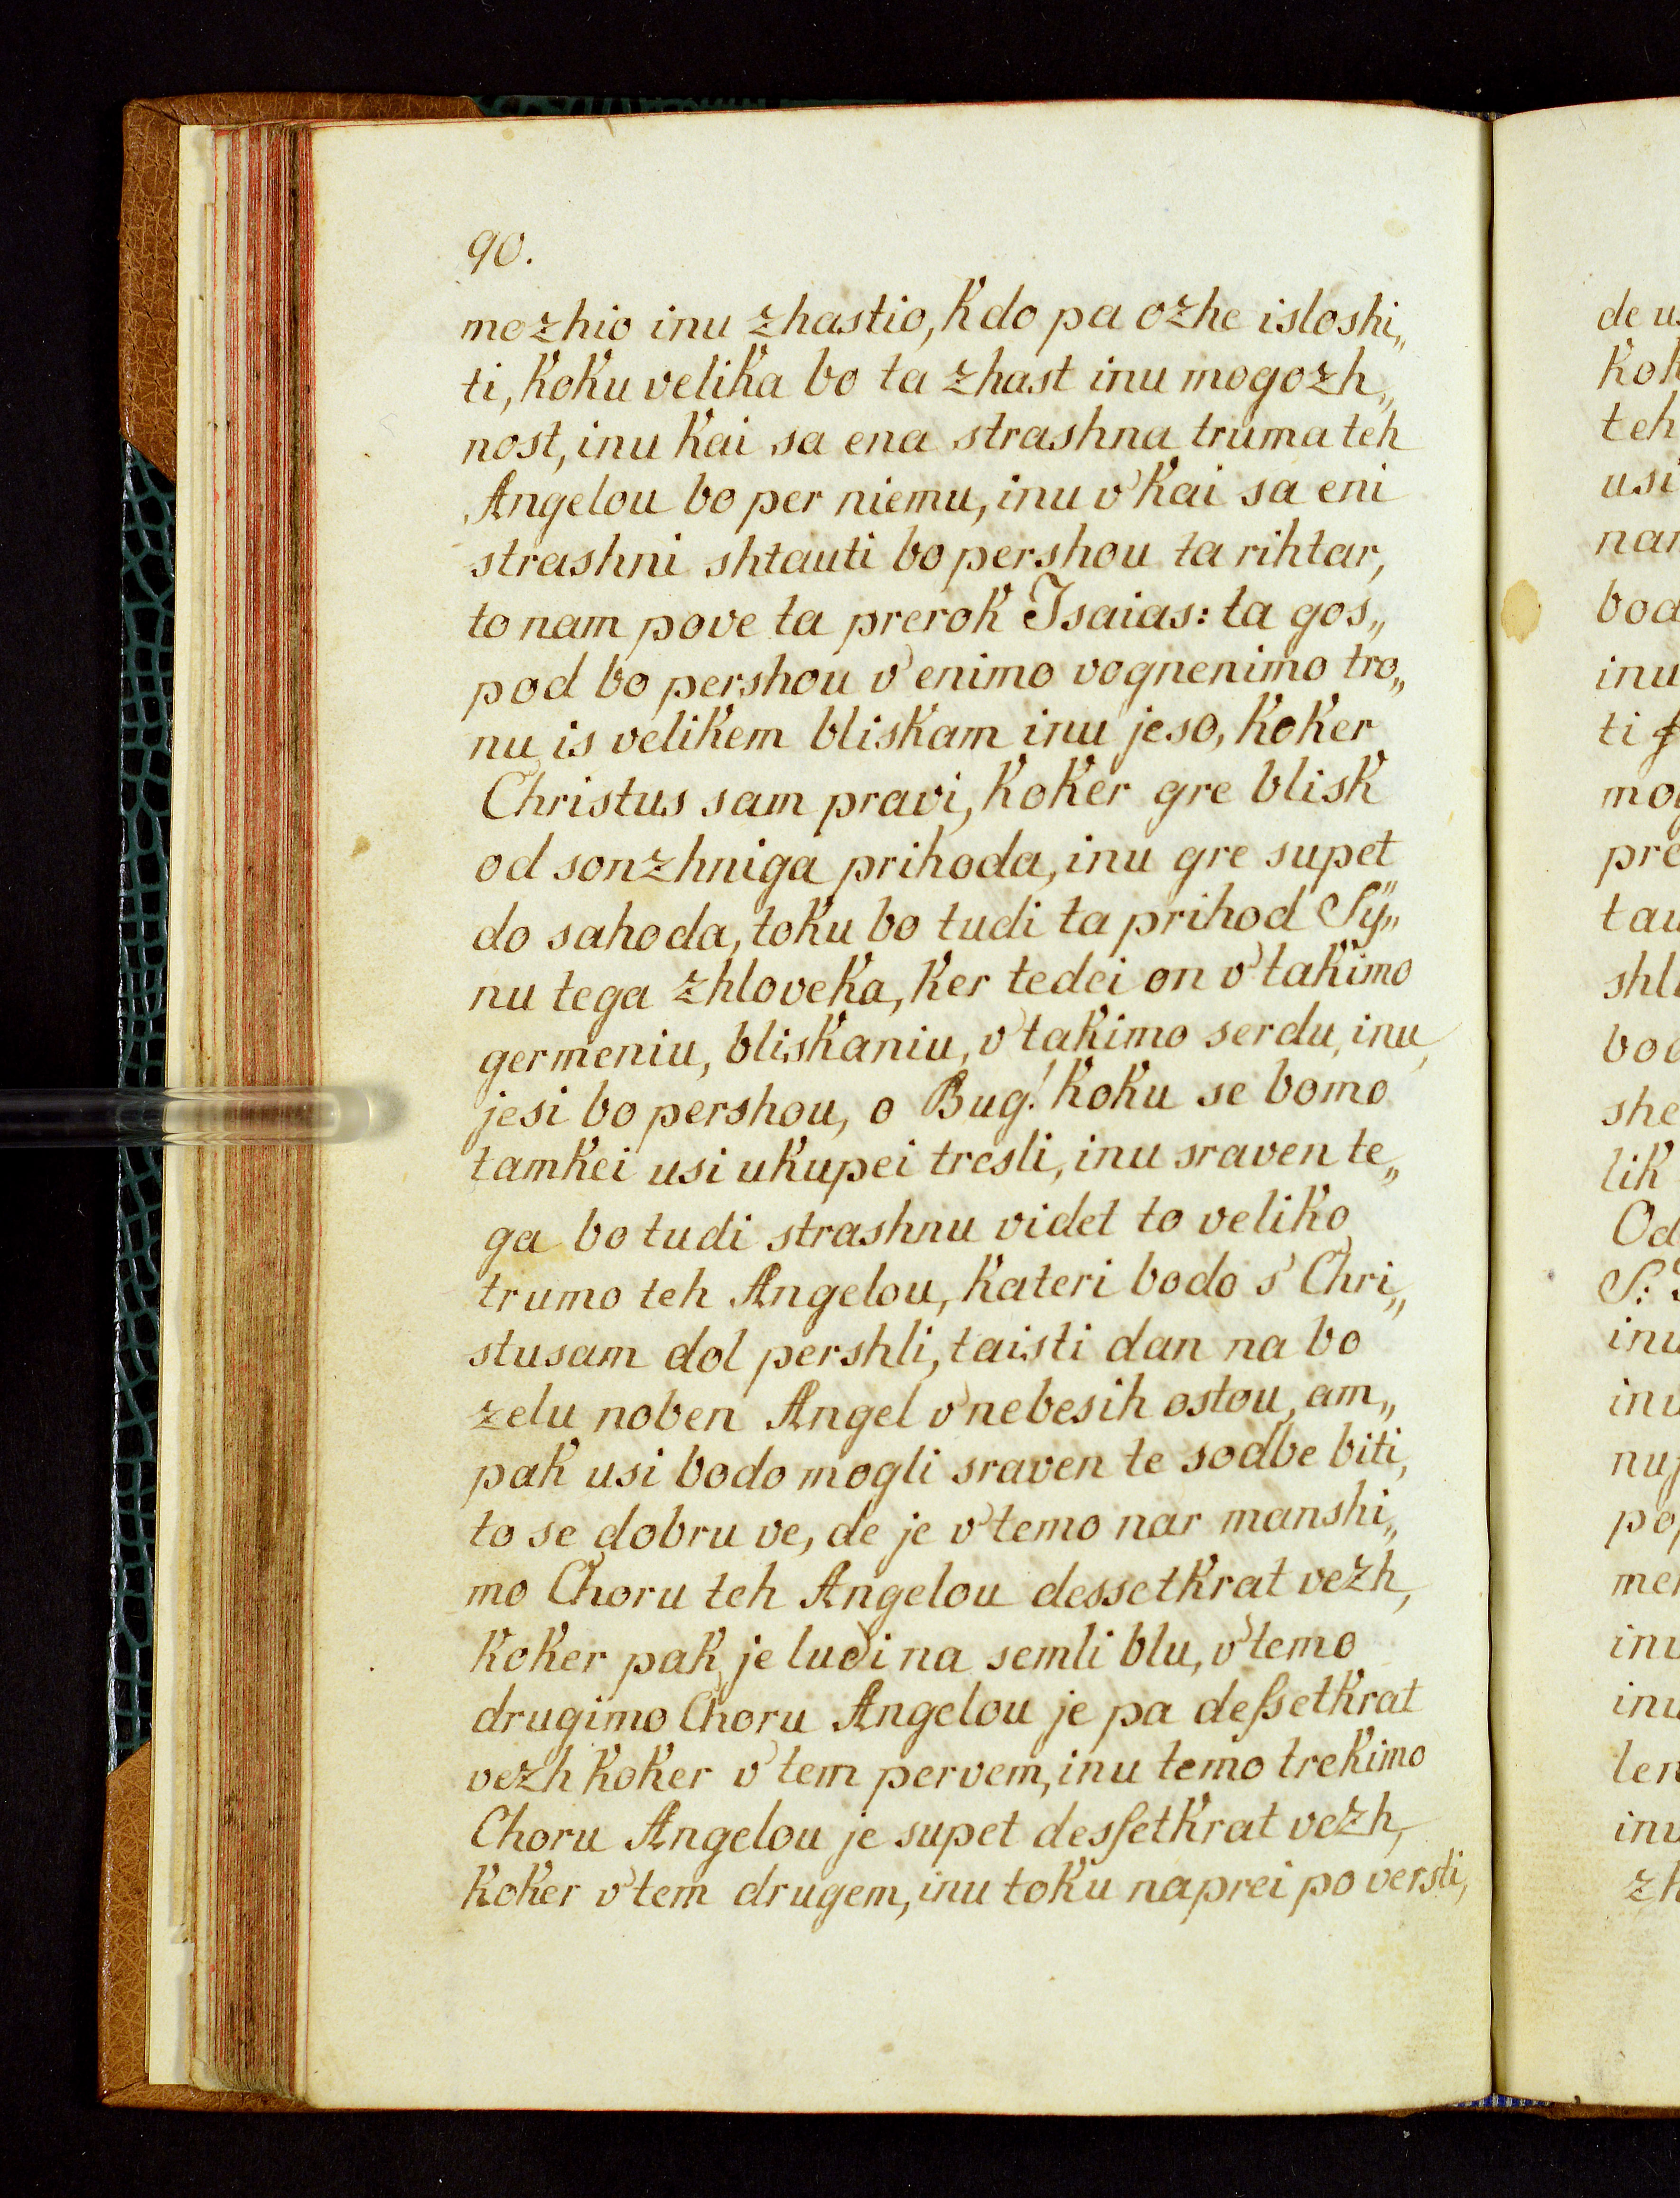 90.
mozhio inu zhastio, kdo pa ozhe isloshi„
ti, koku velika bo ta zhast inu mogozh„
nost, inu kai sa ena strashna truma teh
Angelou bo per niemu, inu v' kai sa eni
strashni shtauti bo pershou ta rihtar,
to nam pove ta prerok Isaias: ta gos„
pod bo pershou v' enimo vognenimo tro„
nu is velikem bliskam inu jeso, koker
Christus sam pravi, koker gre blisk
od sonzhniga prihoda, inu gre supet
do sahoda, toku bo tudi ta prihod Sÿ„
nu tega zhloveka, ker tedei on v' takimo
germeniu, bliskaniu, v' takimo serdu, inu
jesi bo pershou, o Bug! koku se bomo
tamkei usi ukupei tresli, inu sraven te„
ga bo tudi strashnu videt to veliko
trumo teh Angelou, kateri bodo s' Chri„
stusam dol pershli, taisti dan na bo
zelu noben Angel v' nebesih ostou, am„
pak usi bodo mogli sraven te sodbe biti,
to se dobru ve, de je v' temo nar manshi„
mo Choru teh Angelou dessetkrat vezh,
koker pak je ludi na semli blu, v' temo
drugimo Choru Angelou je pa deſsetkrat
vezh koker v' tem pervem, inu temo trekimo
Choru Angelou je supet desſetkrat vezh,
koker v' tem drugem, inu toku naprei po versti,
de u
kok
teh
usi
nar
bod
inu
ti
mog
pre
tau
shl
bod
she
lik
Od
S:
inu
inu
nu
po
men
inu
inu
len
inu
zh